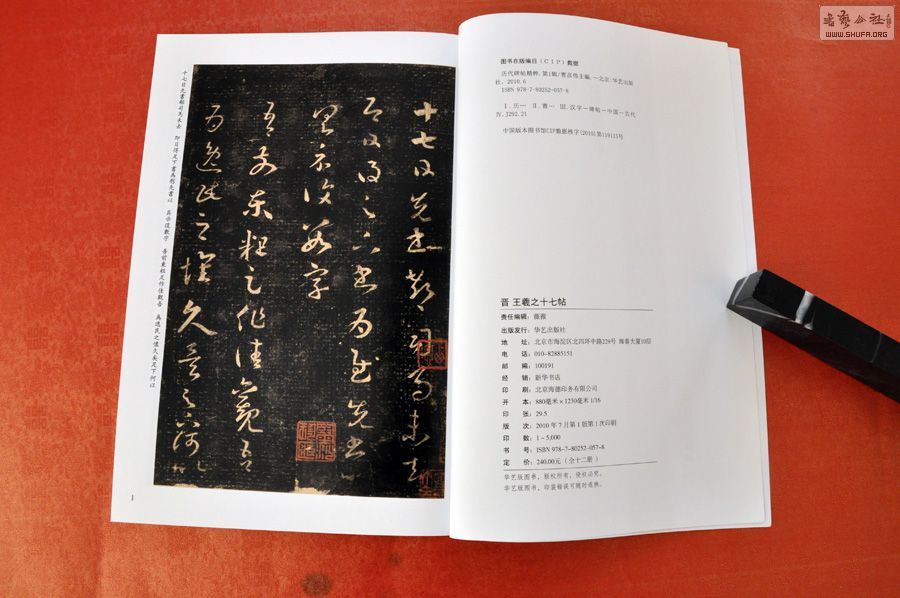 书艺公社
WWW.SHUFA.ORG
十七日先書郗司馬未去 即日得足下書為慰先書以 具示復數字 吾前東粗足作佳觀吾 為逸民之懷久矣足下何以
十七日先書郗司馬未去
即日得足下書為慰先書以
具示復數字
吾前東粗足作佳觀吾
為逸民之懷久矣足下何以
1
图书在版编目(CIP)数据
历代碑帖精粹. 第1辑/曹彦伟主编. —北京:华艺出版
社, 2010.6
ISBN 978-7-80252-057-8
Ⅰ.历… Ⅱ.曹… Ⅲ.汉字—碑帖—中国—古代
Ⅳ.J292.21
中国版本图书馆CIP数据核字(2010)第119115号
晋 王羲之十七帖
责任编辑:薇薇
出版发行:华艺出版社
地 址:北京市海淀区北四环中路229号 海泰大厦10层
电 话:010-82885151
邮 编:100191
经 销:新华书店
印 刷:北京海德印务有限公司
开 本:880毫米×1230毫米 1/16
印 张:29.5
版 次:2010 年 7 月第 1 版第 1 次印刷
印 数:1～5,000
书 号:ISBN 978-7-80252-057-8
定 价:240.00元(全十二册)
华艺版图书,版权所有,侵权必究。
华艺版图书,印装错误可随时退换。